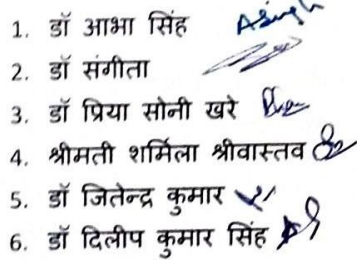 1. डॉ आभा सिंह ASingh
2. डॉ संगीता
3. डॉ प्रिया सोनी खरे
4. श्रीमती शर्मिला श्रीवास्तव
5. डॉ जितेन्द्र कुमार
6. डॉ दिलीप कुमार सिंह